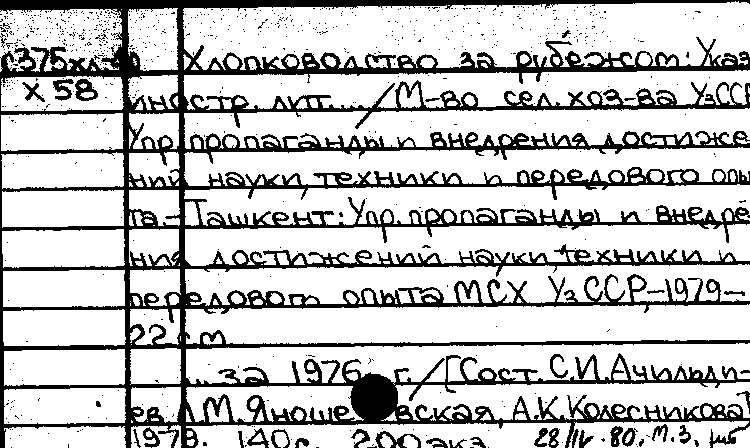 Хлопководство за рубежом: Указ
Х 58
иностр. лит. .../М-во сел. хоз-ва УзССР
Упр. пропаганды и внедрения достиже
ний науки, техники и передового опы
та.-Ташкент: Упр. пропаганды и внедре
ния достижений науки, техники и
передового опыта МСХ УзССР,-1979-
22 см
... за 1976 г. /[Сост. С.И.Ачильди-
ев, Л.М. Яноше вская, А.К.Колесникова]
1979. 140с. 200 экз. 28/IV.80, м.3,